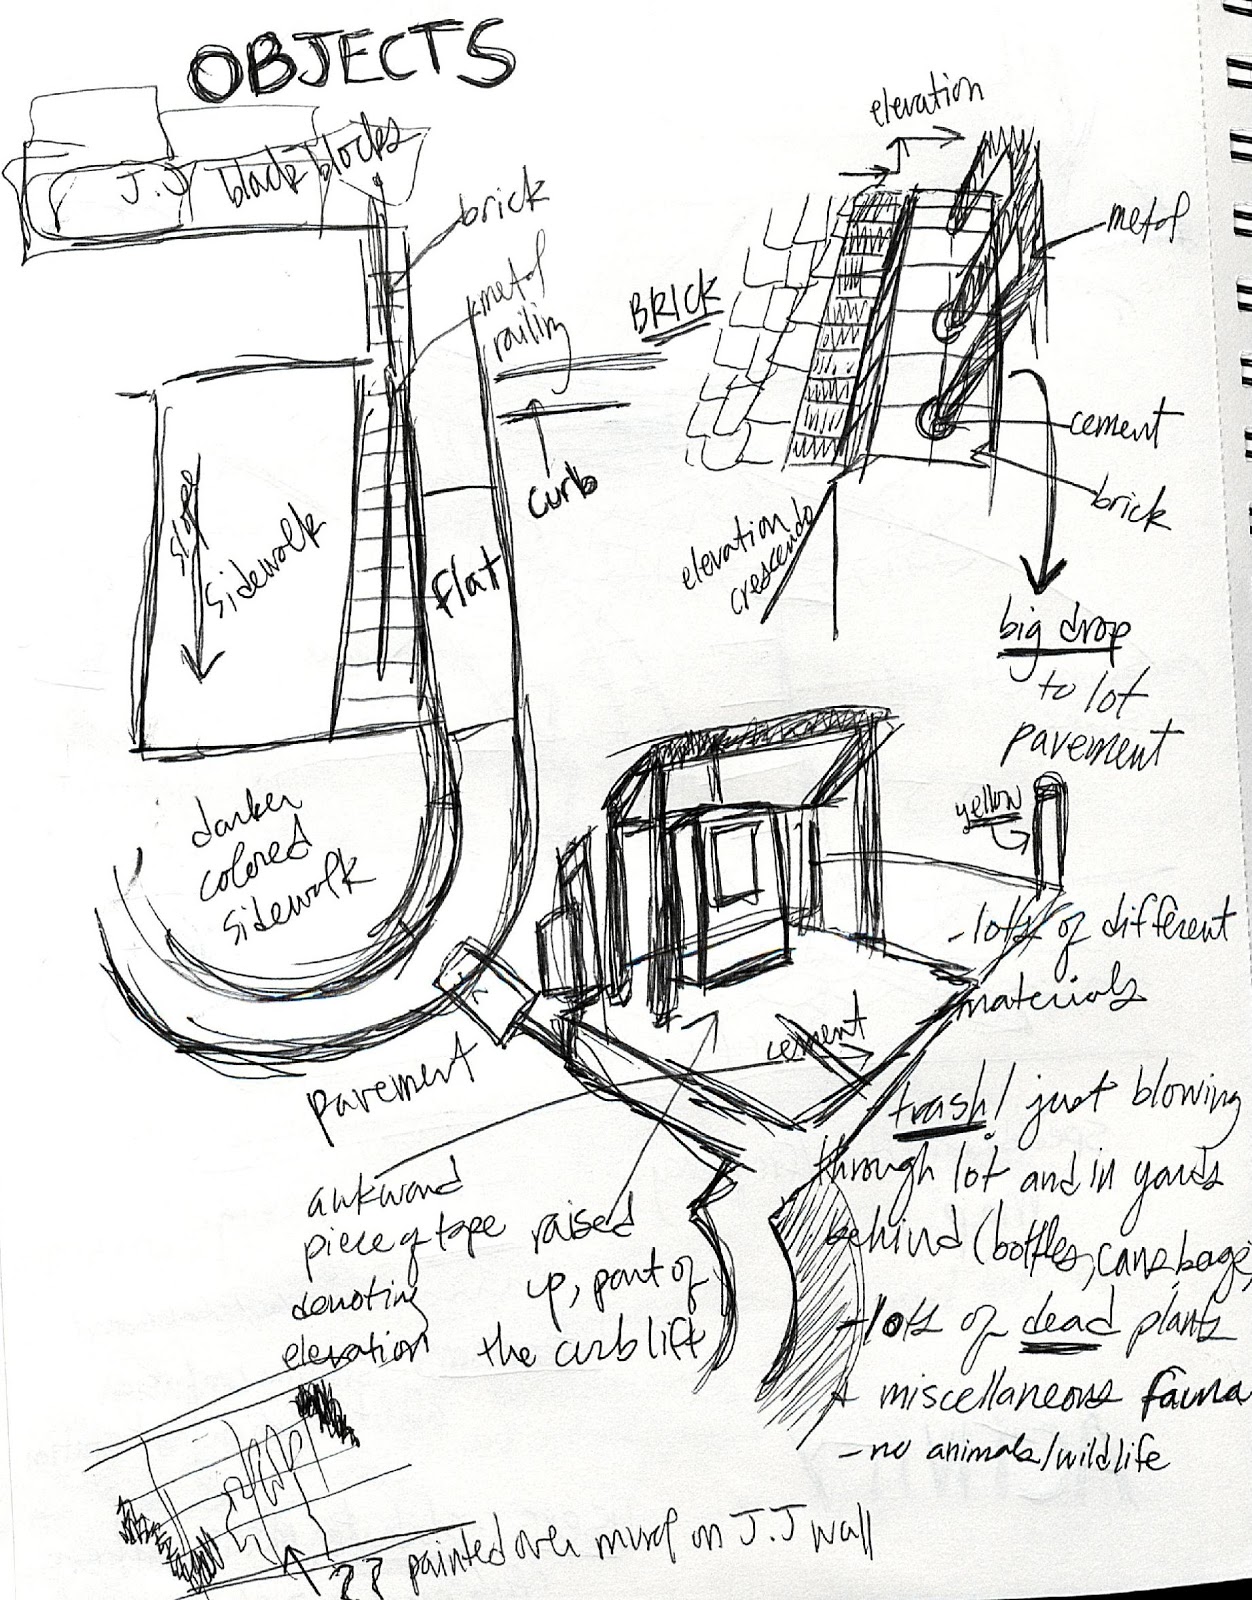 OBJECTS
J.J
black blocks
brick
metal
railing
curb
slope
sidewalk
flat
darker
colored
sidewalk
pavement
BRICK
elevation
metal
cement
brick
elevation
crescendo
big drop
to lot
pavement
yellow
cement
awkward
piece of tape
denoting
elevation
raised
up, part of
the curb lift
-lots of different
materials
- trash! just blowing
through lot and in yards
behind (bottles, cans, bags,
-lots of dead plants
+ miscellaneous fauna
-no animals/wildlife
?? painted over mural on J.J wall